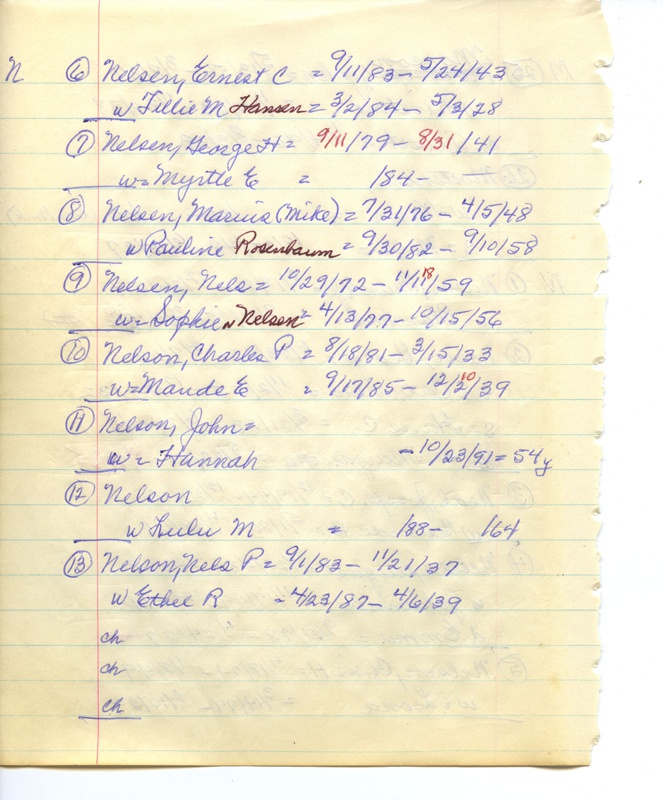 N ⑥ Nelsen, Ernest C = 9/11/83 - 5/24/43
w Tillie M Hansen = 3/2/84 - 5/3/28
⑦ Nelsen, George H = 9/11/79 - 8/31/41
w = Myrtle E = /84 -
⑧ Nelsen, Marius (Mike) = 7/31/76 - 4/5/48
w Pauline Rosenbaum = 9/30/82 - 9/10/58
⑨ Nelsen, Nels = 10/29/72 - 11/11/59 18
w = Sophie N Nelsen = 4/13/77 - 10/15/56
⑩ Nelson, Charles P = 8/18/81 - 3/15/33
w = Maude E = 9/17/85 - 12/2/39 10
⑪ Nelson, John =
w = Hannah - 10/23/91 = 54y
⑫ Nelson
w Lulu M = /88 - /64
⑬ Nelson, Nels P = 9/1/83 - 11/21/37
w Ethel R = 4/23/87 - 4/6/39
ch
ch
ch